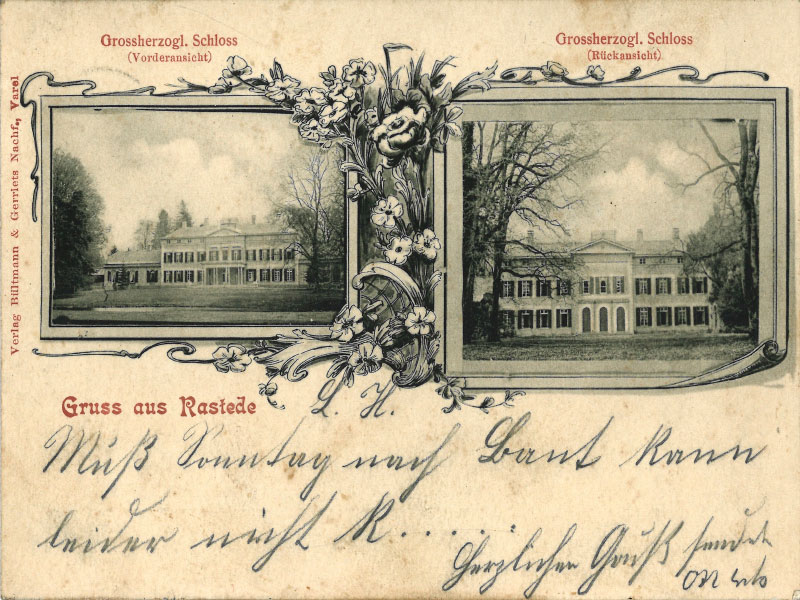 Grossherzogl. Schloss
(Vorderansicht)
Grossherzogl. Schloss
(Rückansicht)
Verlag Bültmann & Gerriets Nachf., Varel
Gruss aus Rastede
L. H.
Muß Sonntag nach Bant kann
leider nicht K. . . . . .
Herzlichen Gruß sendet